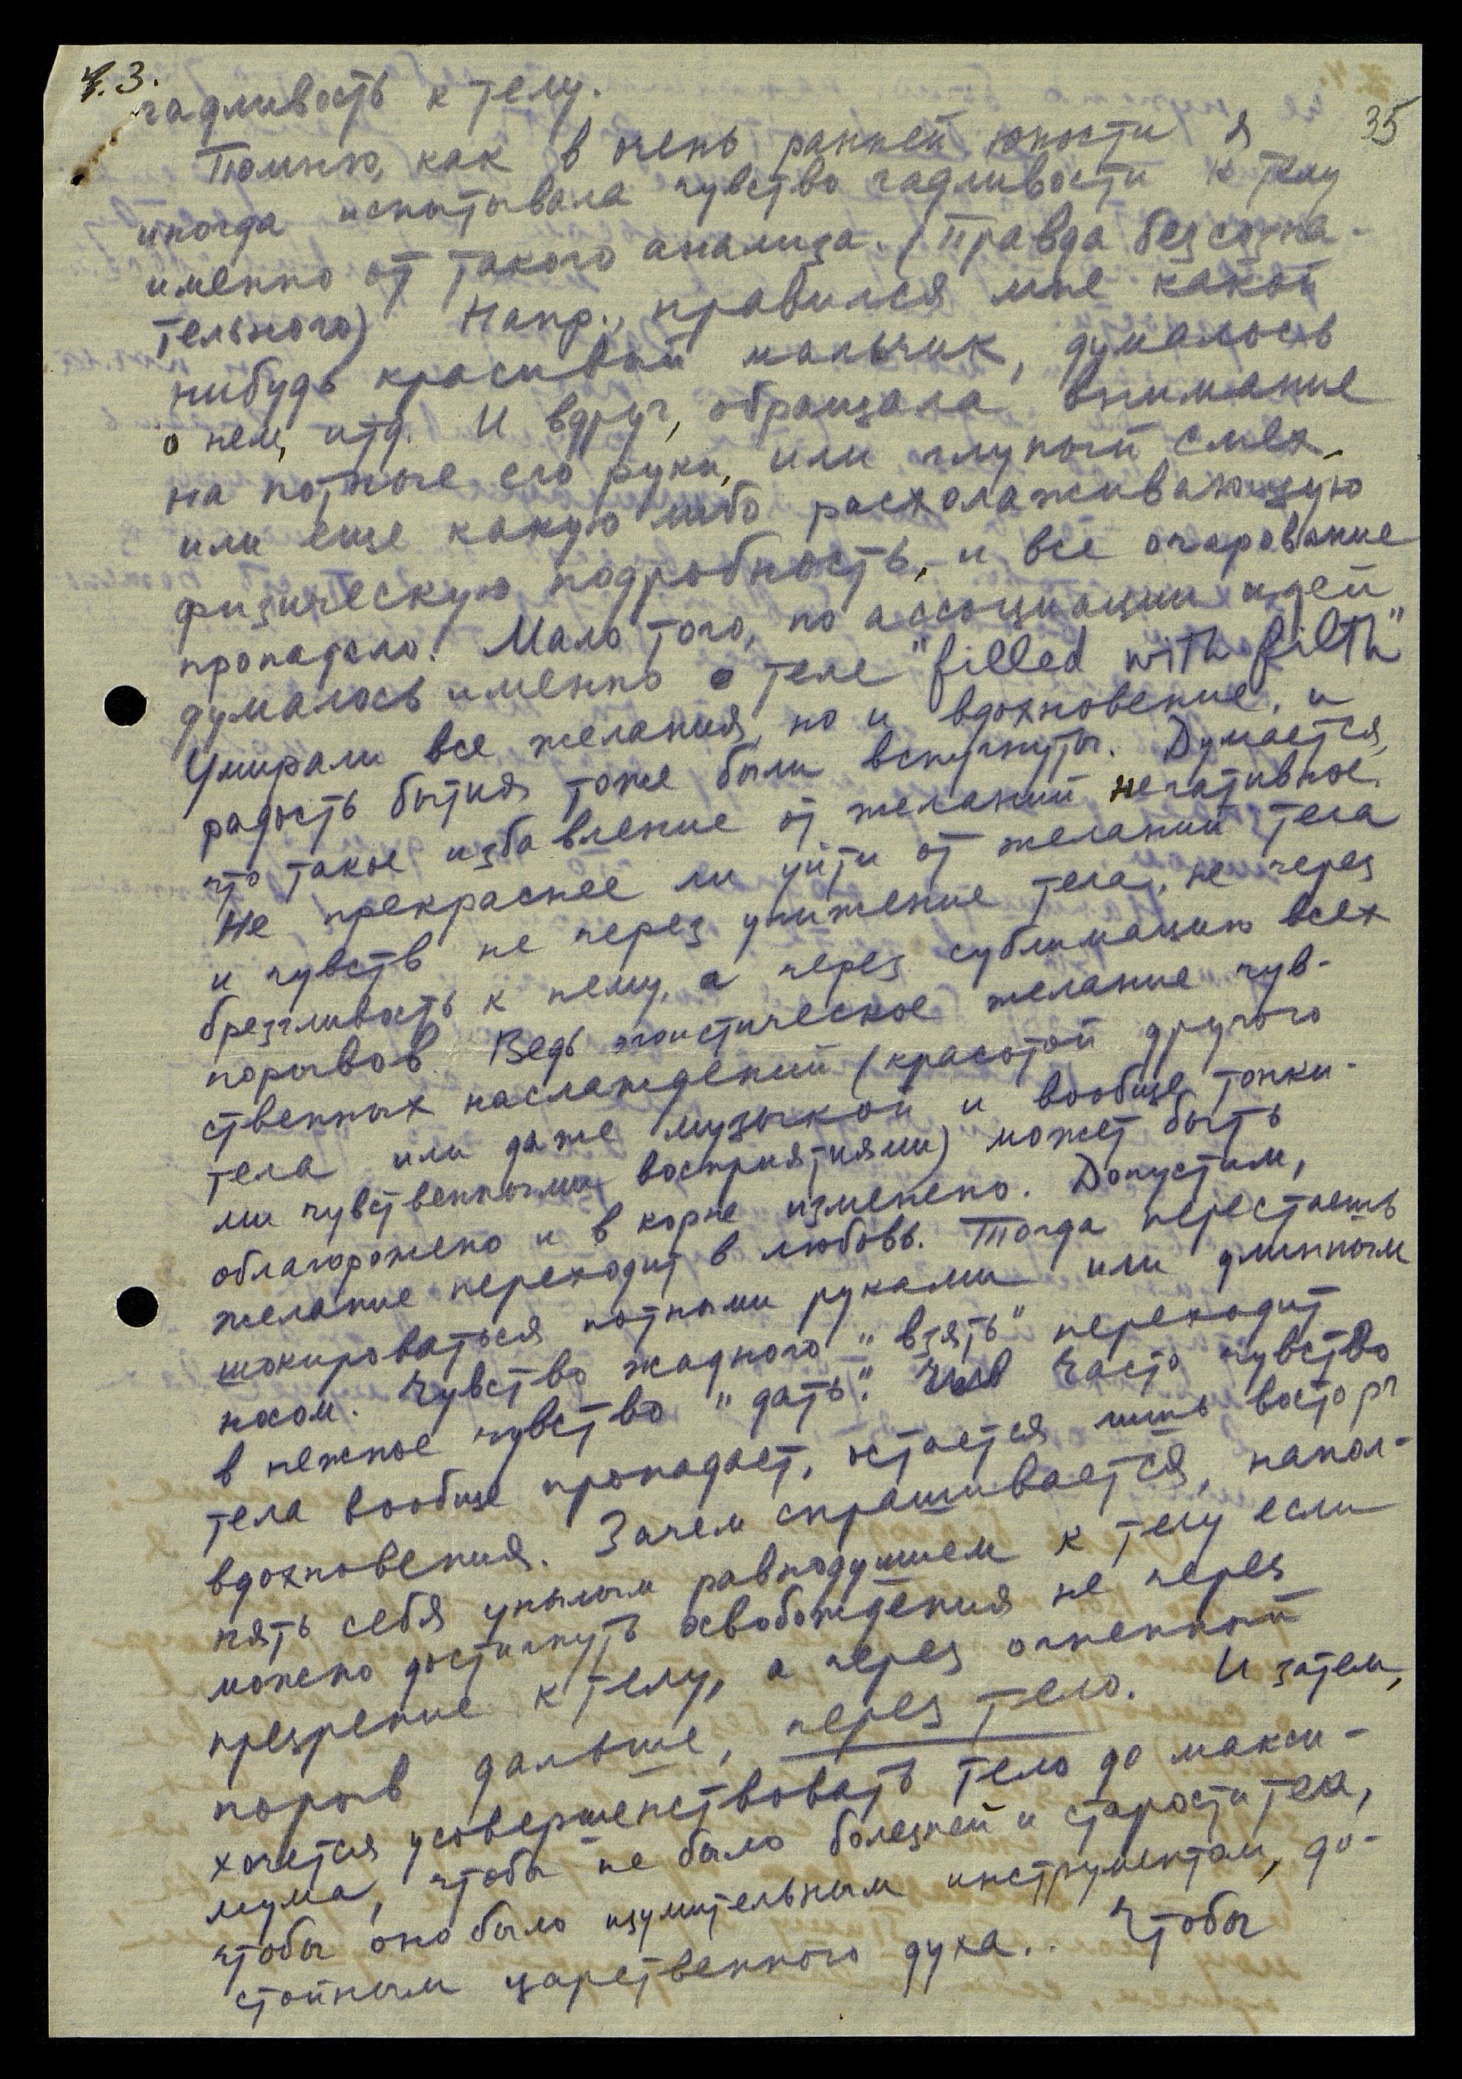 ч. 3.
35
гадливость к телу.
Помню, как в очень ранней юности я
иногда испытывала чувство гадливости к телу
именно от такого анализа. (Правда безсозна-
тельного) Напр., нравился мне какой
нибудь красивый мальчик, думалось
о нем, итд. И вдруг, обращала внимание
на потные его руки, или глупый смех,
или еще какую либо расхолаживающую
физическую подробность, и все очарование
пропадало. Мало того, по ассоциации идей
думалось именно о теле "filled with filth"
Умирали все желания, но и вдохновение, и
радость бытия тоже были вспугнуты. Думается,
что такое избавление от желаний негативное.
Не прекраснее ли уйти от желаний тела
и чувств не через унижение тела, не через
брезгливость к нему, а через сублимацию всех
порывов. Ведь эгоистическое желание чув-
ственных наслаждений (красотой другого
тела или даже музыкой и вообще тонки-
ми чувственными восприятиями) может быть
облагорожено и в корне изменено. Допустим,
желание переходит в любовь. Тогда перестаешь
шокироваться потными руками или длинным
носом. Чувство жадного "взять" переходит
в нежное чувство "дать". Часто чувство
тела вообще пропадает, остается лишь восторг
вдохновения. Зачем спрашивается, напол-
нять себя унылым равнодушием к телу если
можно достигнуть освобождения не через
презрение к телу, а через огненный
порыв дальше, через тело. И затем,
хочется усовершенствовать тело до макси-
мума, чтобы не было болезней и старости тела,
чтобы оно было изумительным инструментом, до-
стойным царственного духа.. Чтобы